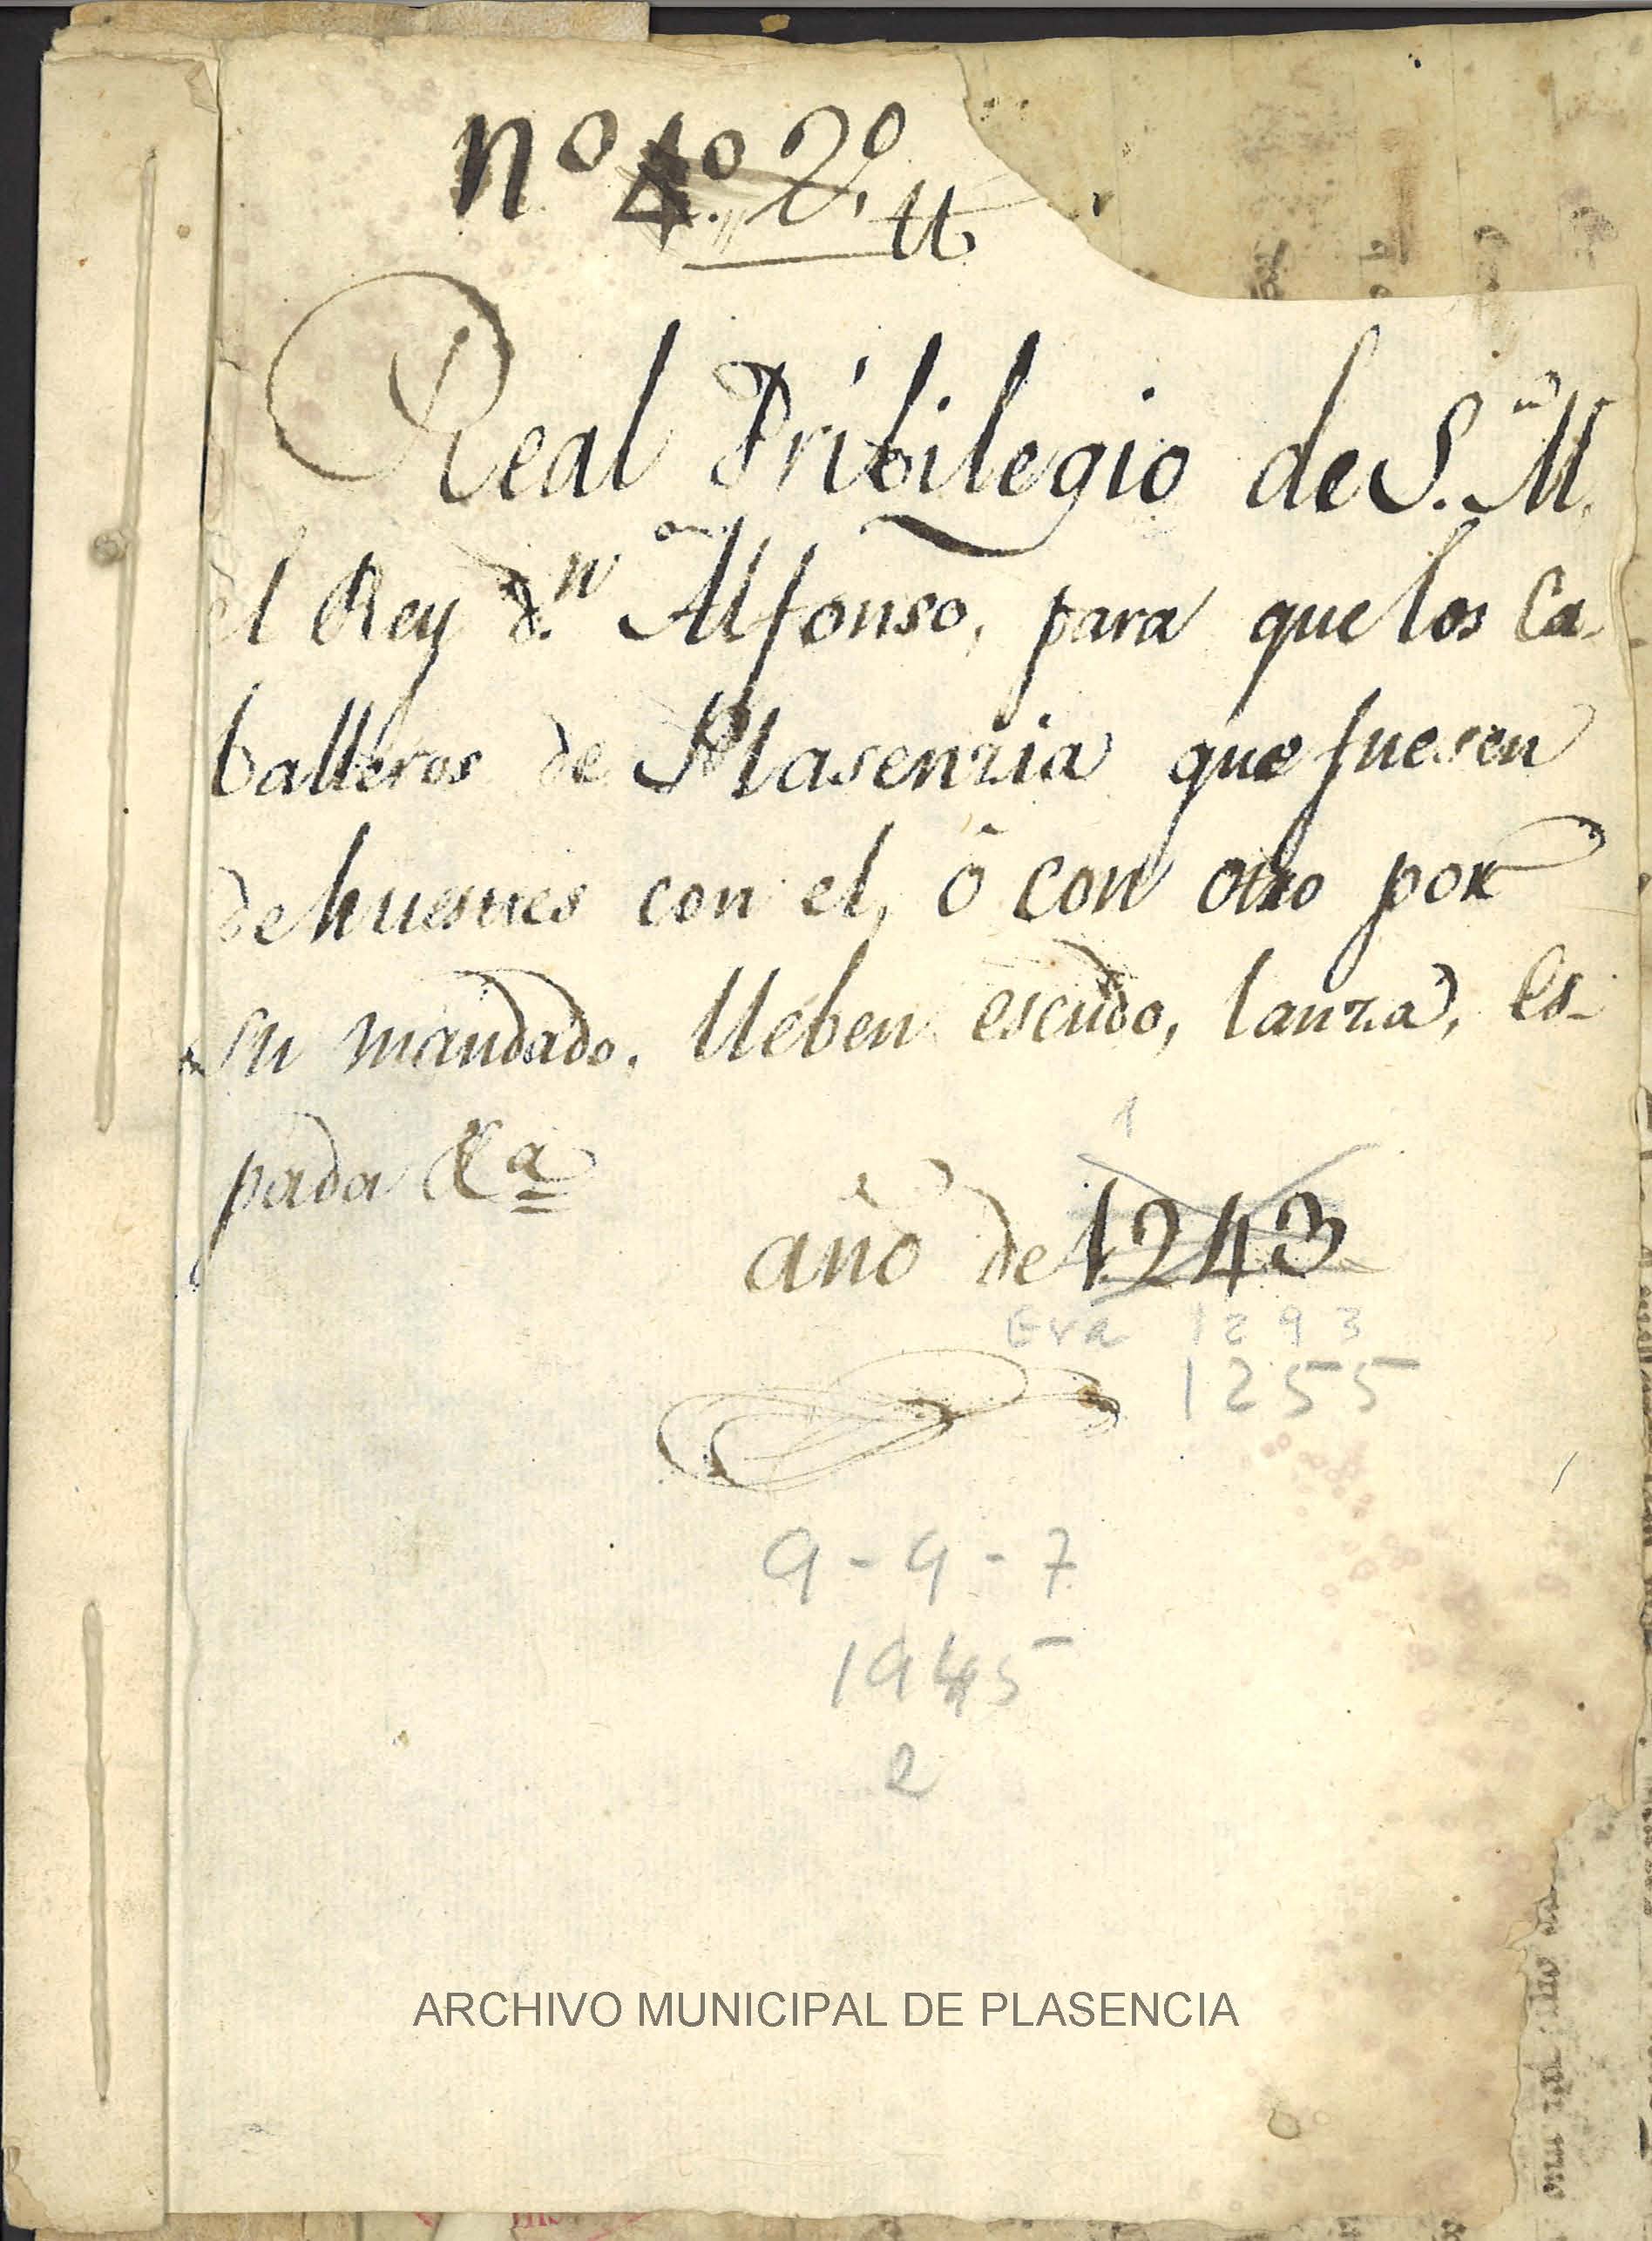 nº 4º 2º
Real Pribilegio de S. M.
el Rey d.n Alfonso, para que los Ca-
balleros de Plasenzia que fuesen
de huestes con el, ô con otro por
su mandado. lleben escudo, lanza, es-
pada &a
1
año de 1243
Era 1293
1255
9-9-7
1945
2
ARCHIVO MUNICIPAL DE PLASENCIA